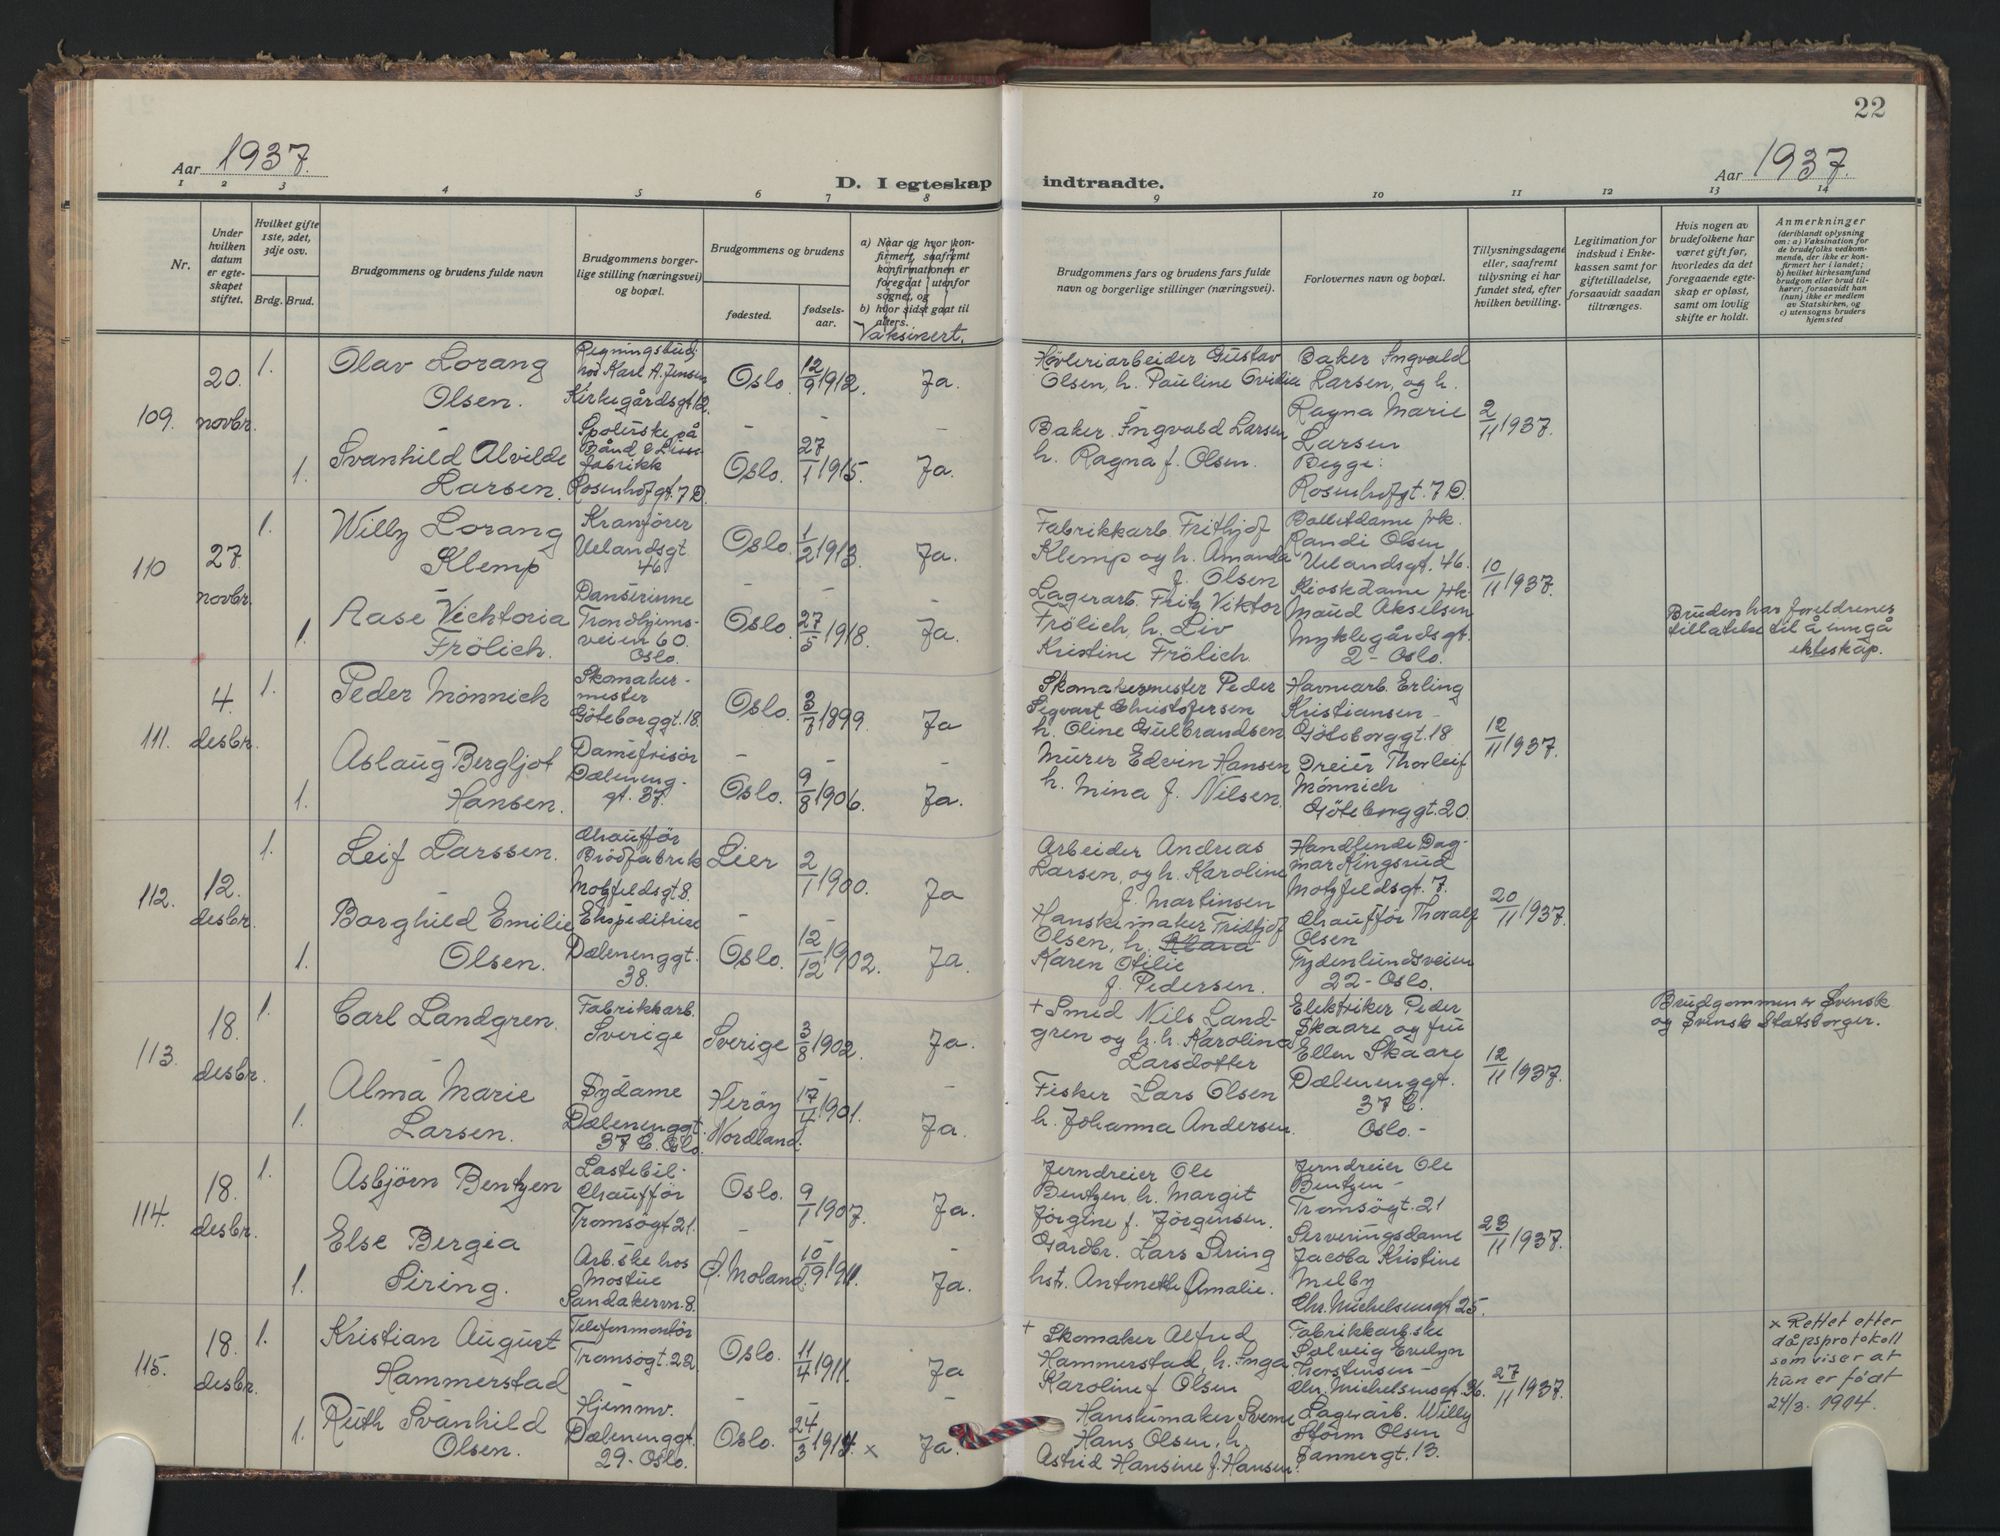 22
Aar 1937.
D. I egteskap indtraadte.
Aar 1937.
1 2 3 4 5 6 7 8 9 10 11 12 13 14
Nr.
Under hvilken datum er egteskapet stiftet.
Hvilket gifte 1ste, 2det, 3dje osv.
Brdg. Brud.
Brudgommens og brudens fulde navn
Brudgommens borgerlige stilling (næringsvei) og bopæl.
Brudgommens og brudens
fødested.
fødselsaar.
a) Naar og hvor konfirmert, saafremt konfirmationen er foregaat utenfor sognet, og
b) hvor sidst gaat til alters.
Vaksinert.
Brudgommens fars og brudens fars fulde navn og borgerlige stillinger (næringsvei).
Forlovernes navn og bopæl.
Tillysningsdagene eller, saafremt tillysning ei har fundet sted, efter hvilken bevilling.
Legitimation for indskud i Enkekassen samt for giftetilladelse, forsaavidt saadan tiltrænges.
Hvis nogen av brudefolkene har været gift før, hvorledes da det foregaaende egteskap er opløst, samt om lovlig skifte er holdt.
Anmerkninger (deriblandt oplysning om: a) Vaksination for de brudefolks vedkommende, der ikke er konfirmert her i landet; b) hvilket kirkesamfund brudgom eller brud tilhører, forsaavidt han (hun) ikke er medlem av Statskirken, og c) utensogns bruders hjemsted
109. 20. novbr.
1. Olav Lorang Olsen.
Regningsbud hos Karl A. Jensen
Kirkegårdsgt 12.
Oslo. 12/9 1912. Ja.
Høvleriarbeider Gustav
Olsen, h. Pauline Ovidia
1. Svanhild Alvilde Larsen.
Spolerske på
Bånd & Lisse
fabrikk
Rosenhofgt. 7 D.
Oslo. 27/1 1915. Ja.
Baker Ingvald Larsen
h. Ragna f. Olsen.
Baker Ingvald
Larsen, og h.
Ragna Marie
Larsen
Begge:
Rosenhofgt. 7 D.
2/11 1937.
110 27. novbr.
1. Willy Lorang Klemp
Kranfører
Uelandsgt.
46
Oslo. 1/2 1913. Ja.
Fabrikkarb. Frithjof
Klemp og h. Amanda
f. Olsen
1. Aase Vichtoria Frölich.
Danserinne
Trondhjems-
veien 60.
Oslo.
Oslo. 27/5 1918. Ja.
Lagerarb. Fritz Viktor
Frölich, h. Liv
Kristine Frölich.
Ballettdame frk.
Randi Olsen
Uelandsgt. 46.
Kioskdame frk.
Maud Akselsen
Myklegårdsgt.
2 - Oslo.
10/11 1937.
Bruden har foreldrenes
tillatelse til å inngå
ekteskap.
111. 4. desbr.
1. Peder Mönnich
Skomaker-
mester
Göteborggt. 18.
Oslo. 3/3 1899. Ja
Skomakermester Peder
Sigvart Christofersen
h. Oline Gulbrandsen
1. Aslaug Bergljot Hansen.
Damefrisör
Dæleneng-
gt. 37.
Oslo. 9/8 1906. Ja.
Murer Edvin Hansen
h. Mina f. Nilsen.
Havnearb. Erling
Kristiansen -
Göteborggt. 18
Dreier Thorleif
Mönnich
Göteborggt. 20.
12/11 1937.
112. 12. desbr.
1. Leif Larssen.
Chaufför
Brödfabrik
Motzfeldsgt. 8.
Lier 2/1 1900. Ja
Arbeider Andreas
Larsen, og h. Karoline
f. Martinsen
1. Borghild Emilie Olsen.
Ekspeditrise
Dælenenggt.
38.
Oslo. 12/12 1902. Ja.
Hanskemaker Fridtjof
Olsen, h. Klara
Karen Otilie
f. Pedersen.
Handlende Dag-
mar Kingsrud
Motzfeldsgt. 7.
Chaufför Thoralf
Olsen
Frydenlundsveien
22 - Oslo.
20/11 1937.
113. 18. desbr.
1. Carl Landgren.
Fabrikkarb.
Sverige
Sverige 3/8 1902. Ja.
+ Smed Nils Land-
gren og h. h. Karolina
Larsdotter
1. Alma Marie Larsen.
Sydame
Dælenenggt.
37 C Oslo.
Herøy
Nordland.
17/4 1901. Ja.
Fisker Lars Olsen
h. Johanna Andersen.
Elektriker Peder
Skaare og fru
Ellen Skaare
Dælenenggt.
37 C.
Oslo. -
12/11 1937.
Brudgommen er Svensk
og Svensk Statsborger.
114. 18. desbr.
1. Asbjörn Bentzen
Lastebil-
Chaufför
Tromsögt 21.
Oslo. 9/1 1907. Ja.
Jerndreier Ole
Bentzen, h. Margit
Jörgine f. Jörgensen.
1. Else Bergia Siring.
Arb.ske hos
Mostue
Sandakervn. 8.
Ø. Moland. 10/9 1911. Ja.
Gardbr. Lars Siring
hstr. Antonette Amalie.
Jerndreier Ole
Bentzen -
Tromsögt. 21
Serveringsdame
Jacoba Kristine
Melby
Chr. Michelsensgt 25.
23/11 1937.
115. 18. desbr.
1. Kristian August Hammerstad
Telefonmontör
Tromsögt. 22
Oslo. 11/4 1911. Ja
+ Skomaker Alfred
Hammerstad, h. Inga
Karoline f. Olsen
1. Ruth Svanhild Olsen.
Hjemmv.
Dælenenggt.
29 - Oslo.
Oslo. 24/3 1914. x Ja.
Hanskemaker Sverre
Hans Olsen, h.
Astrid Hansine f. Hansen.
Fabrikkarb.ske
Solveig Evelyn
Thorstensen -
Chr. Michelsensgt. 36.
Lagerarb. Willy
Storm Olsen
Sannergt. 13.
27/11 1937.
x Rettet etter
dåpsprotokoll
som viser at
hun er født
24/3. 1914.